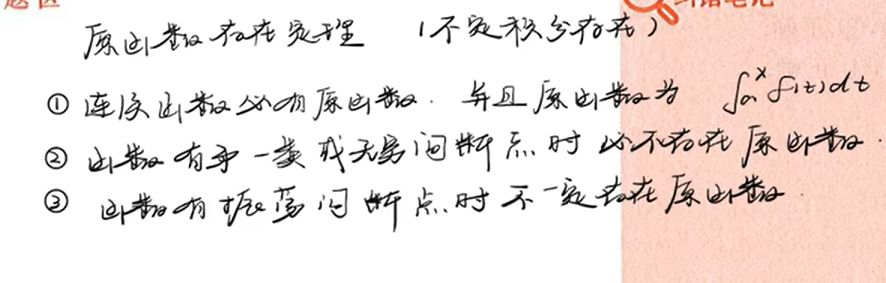 题区
纠错笔记
原函数存在定理 (不定积分存在)
① 连续函数必有原函数. 并且原函数为 ∫ₐˣ f(t)dt
② 函数有第一类或无穷间断点时必不存在原函数.
③ 函数有振荡间断点时不一定存在原函数.